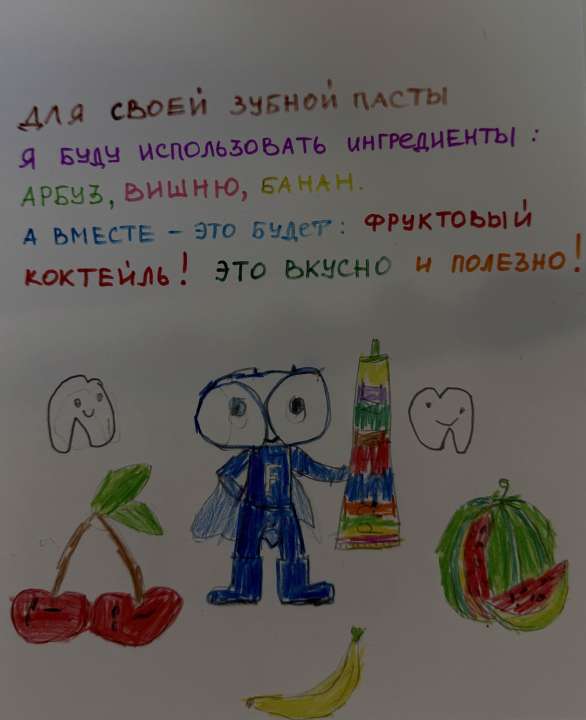 ДЛЯ СВОЕЙ ЗУБНОЙ ПАСТЫ
Я БУДУ ИСПОЛЬЗОВАТЬ ИНГРЕДИЕНТЫ:
АРБУЗ, ВИШНЮ, БАНАН.
А ВМЕСТЕ – ЭТО БУДЕТ: ФРУКТОВЫЙ
КОКТЕЙЛЬ! ЭТО ВКУСНО И ПОЛЕЗНО!
F